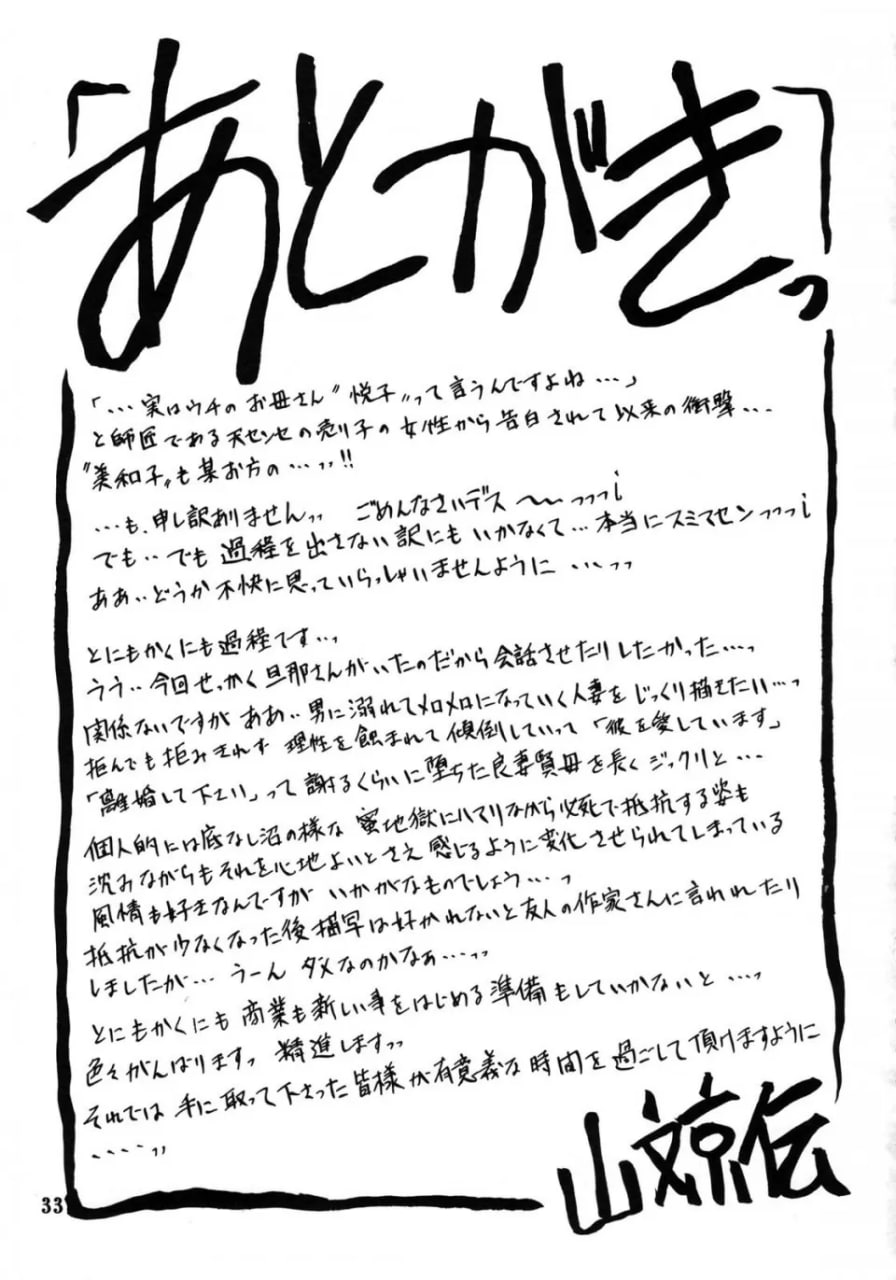 「あとがきっ」
「…実はウチのお母さん〝悦子〟って言うんですよね…」
と師匠である天センセの売り子の女性から告白されて以来の衝撃…
〝美和子〟も某お方の…ッッ!!
…も、申し訳ありませんッッ ごめんなさいデス〜〜っっっ¡
でも‥でも過程を出さない訳にもいかなくて…本当にスミマセンっっっ¡
ああ‥どうか不快に思っていらっしゃいませんように…ッッ
とにもかくにも過程です‥っ
うう‥今回せっかく旦那さんがいたのだから会話させたりしたかった…っ
関係ないですが ああ‥男に溺れてメロメロになっていく人妻をじっくり描きたい…っ
拒んでも拒みきれず 理性を蝕まれて傾倒していって「彼を愛しています」
「離婚して下さい」って謝るくらいに堕ちた良妻賢母を長くジックリと…
個人的には底なし沼の様な蜜地獄にハマりながら必死で抵抗する姿も
沈みながらもそれを心地よいとさえ感じるように変化させられてしまっている
風情も好きなんですが いかがなものでしょう…っ
抵抗が少なくなった後描写は好かれないと友人の作家さんに言われたり
しましたが… うーん ダメなのかなぁ…ッッ
とにもかくにも商業も新しい事をはじめる準備もしていかないと…っ
色々がんばりますっ 精進しますッッ
それでは 手に取って下さった皆様が有意義な時間を過ごして頂けますように
‥‥ッッ
山文京伝
33